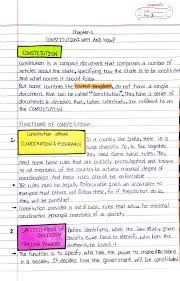 Chapter-1
CONSTITUTION: WHY AND HOW?
CONSTITUTION
Constitution is a compact document that comprises a number of
articles about the state, specifying how the state is to be constituted
and what norms it should follow.
But some countries like the United Kingdom, do not have a single
document that can be called "constitution", they have a series of
documents & decisions that, taken collectively, are referred to as
the CONSTITUTION.
FUNCTIONS OF CONSTITUTION:-
1. Constitution allows
COORDINATION & ASSURANCE
In a country like India, there is a
huge diversity. So, to live together
they need some basic rules. We
need some basic rules that are publicly promulgated and known
to all members of the country to achieve minimal degree of
coordination. And these rules should be enforceable.
The rules must be legally enforceable gives an assurance to
everyone that others will follow these, for if they do not do so,
they will be punished.
Constitution provides a set of basic rules that allow for minimal
coordination amongst members of a society.
2. SPECIFICATION OF
DECISION
MAKING POWERS
identifying when the
society have to identify who has the
authority to enact it
The function is to specify who has the power to make decisions
in a society. It decides how the government will be constituted